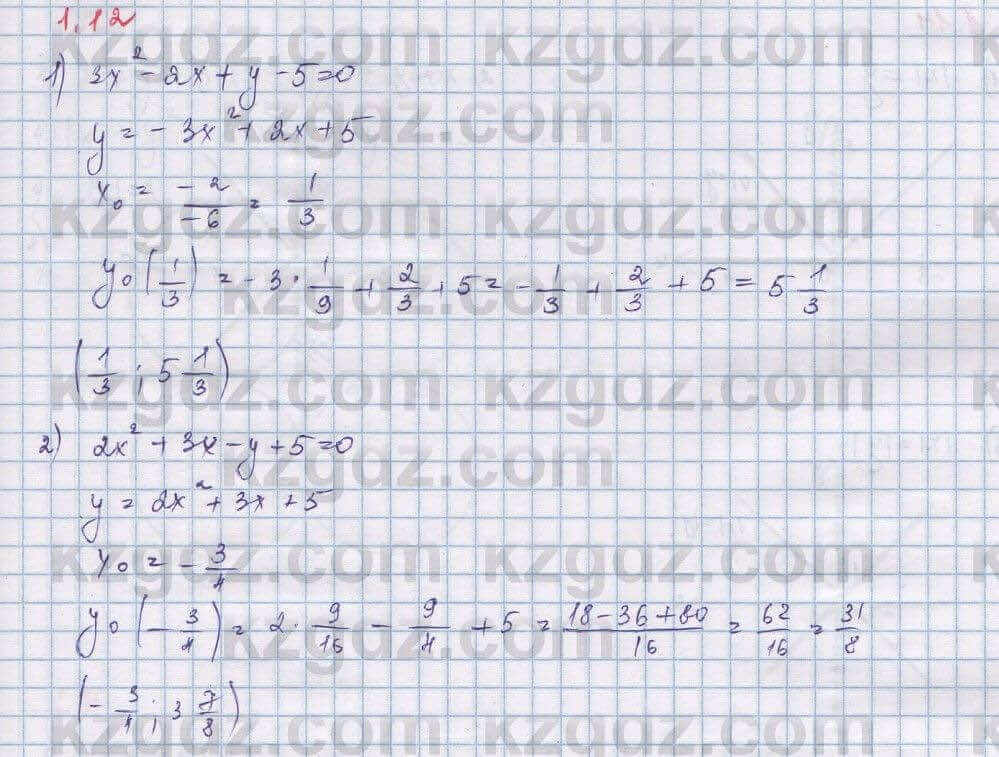 1.12
1) 3x² - 2x + y - 5 = 0
y = - 3x² + 2x + 5
x₀ = -2/-6 = 1/3
y₀(1/3) = - 3 · 1/9 + 2/3 + 5 = - 1/3 + 2/3 + 5 = 5 1/3
(1/3 ; 5 1/3)
2) 2x² + 3x - y + 5 = 0
y = 2x² + 3x + 5
x₀ = - 3/4
y₀(- 3/4) = 2 · 9/16 - 9/4 + 5 = 18 - 36 + 80/16 = 62/16 = 31/8
(- 3/4 ; 3 7/8)
kzgdz.com
kzgdz.com
kzgdz.com
kzgdz.com
kzgdz.com
kzgdz.com
kzgdz.com
kzgdz.com
kzgdz.com
kzgdz.com
kzgdz.com
kzgdz.com
kzgdz.com
kzgdz.com